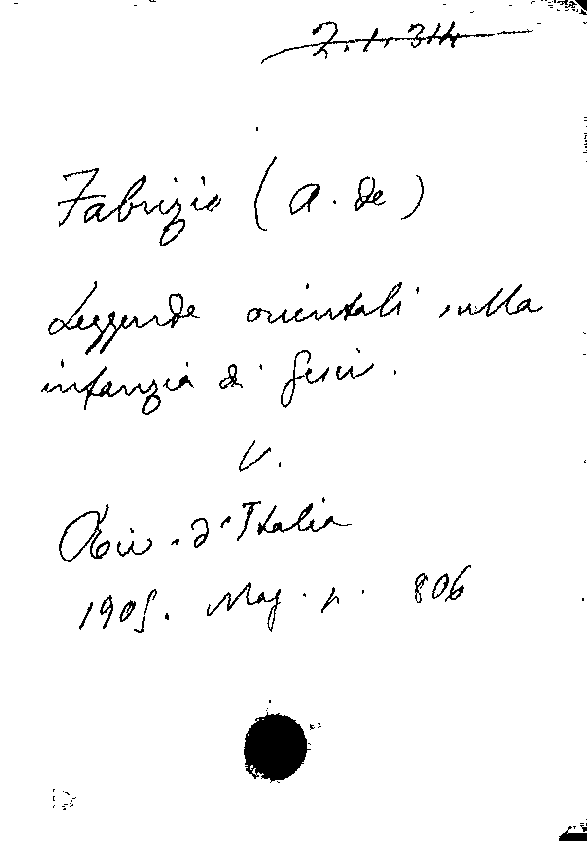 2.1.314
Fabrizio (A. de)
Leggende orientali sulla
infanzia di Gesù.
V.
Riv. d'Italia
1905. Mag. p. 806